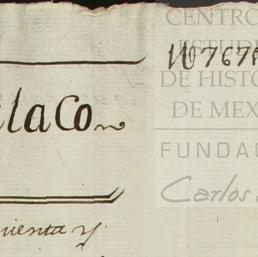 CENTRO
ESTUDI
DE HISTO
DE MEX
FUNDAC
Carlos
laCo
uenta y